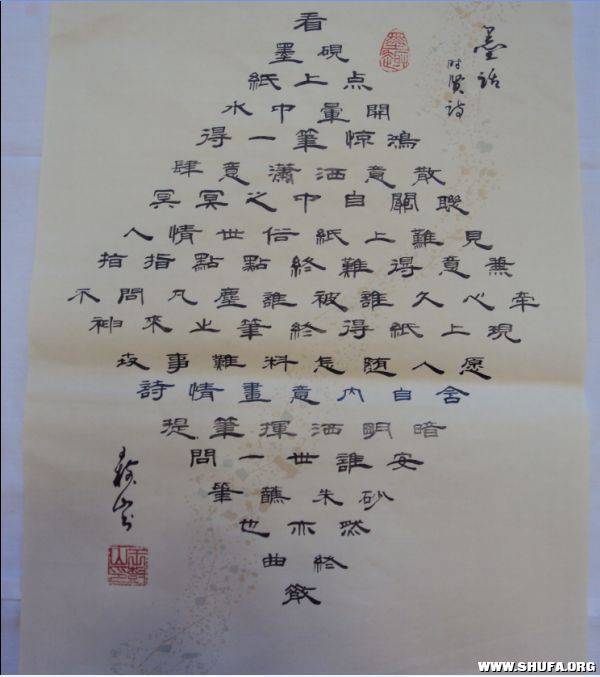 墨話
时贤诗
看
墨硯
紙上点
水中暈開
得一筆惊鴻
肆意瀟洒意散
冥冥之中自關聯
人情世俗紙上難見
指指點點終難得意兼
不問凡塵誰被誰久心牵
神來之筆終得紙上現
事難料怎随人愿
詩情畫意内自舍
提筆揮洒明暗
問一世誰安
筆蘸朱砂
也亦然
曲終
散
WWW.SHUFA.ORG